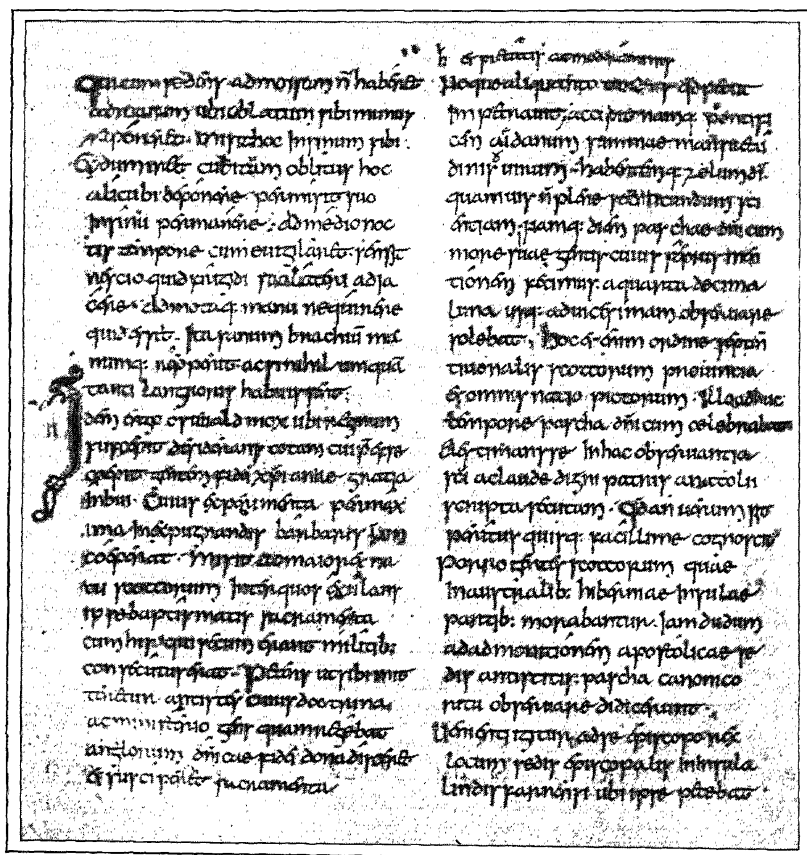 Qui cum sedens ad mensam n̄ haberet
ad manum ubi oblatum sibi munus
reponeret. misit hoc in sinum sibi.
Et dum iret cubitum oblitus hoc
alicubi deponere permisit suo
in sinu permanere. ad medio noc
tis tempore cum euigilaret. sensit
nescio quid frigidi suo lateri adia
cere. admotaq; manu requirens
quid esset. Ita sanum brachiū ma
numq; repperit ac si nihil umquā
tanti languoris habuisset.
Idem ergo osuald mox ubi regnum
suscepit desiderans totam cui praeesse
coepit gentem fidei xp̄ianae gratia
inbui. Cuius experimenta permax
ima in expugnandis barbaris iam
coeperat. misit ad maiores na
tu scottorum inter quos exulans
ipse baptismatis sacramenta
cum his qui secum erant militib;
consecutus erat. Petens ut sibi mit
teretur antistes cuius doctrina
ac ministerio gens quam regebat
anglorum dn̄icae fidei dona disceret
et susciperet sacramenta
h et pietatis ac moderaminis
Neque aliquanto tardius quod petiit
inpetrauit; accepit namq; pontifi
cem aidanum summae mansuetu
dinis uirum. habentemq; zelum dī
quamuis n̄ plene secundum sci
entiam. namq; diem paschae dn̄icum
more suae gentis cuius sepius men
tionem fecimus. a quarta decima
luna usq; ad uicesimam obseruare
solebat. Hoc etenim ordine septen
trionalis scottorum prouincia
et omnis natio pictorum. Illo adhuc
tempore pascha dn̄icum celebrabat
Aestimans se in hac obseruantia
sci ac laude digni patris anatolii
scripta secutam. Quod an uerum sit
peritus quisq; facillime cognoscit
Porro gentes scottorum quae
in australib; hiberniae insulae
partib; morabantur. iamdudum
ad admonitionem apostolicae se
dis antistitis pascha canonico
ritu obseruare didicerunt.
Uenienti igitur ad se episcopo rex
locum sedis episcopalis in insula
lindisfarnensi ubi ipse petebat